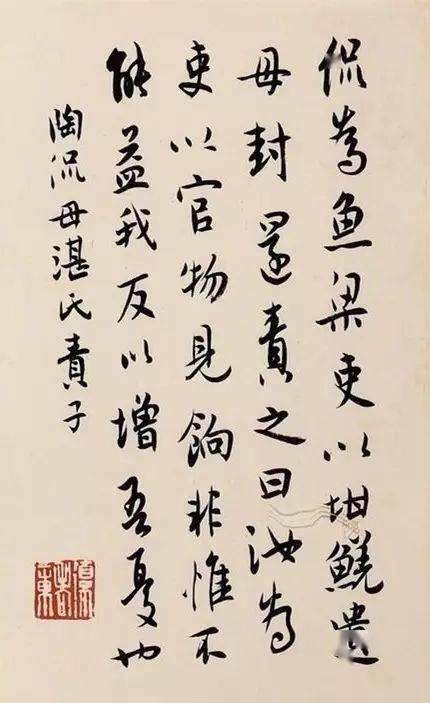 侃為魚梁吏以坩遺
母封還責之曰汝為
吏以官物見餉非惟不
能益我反以增吾憂也
陶侃母湛氏責子